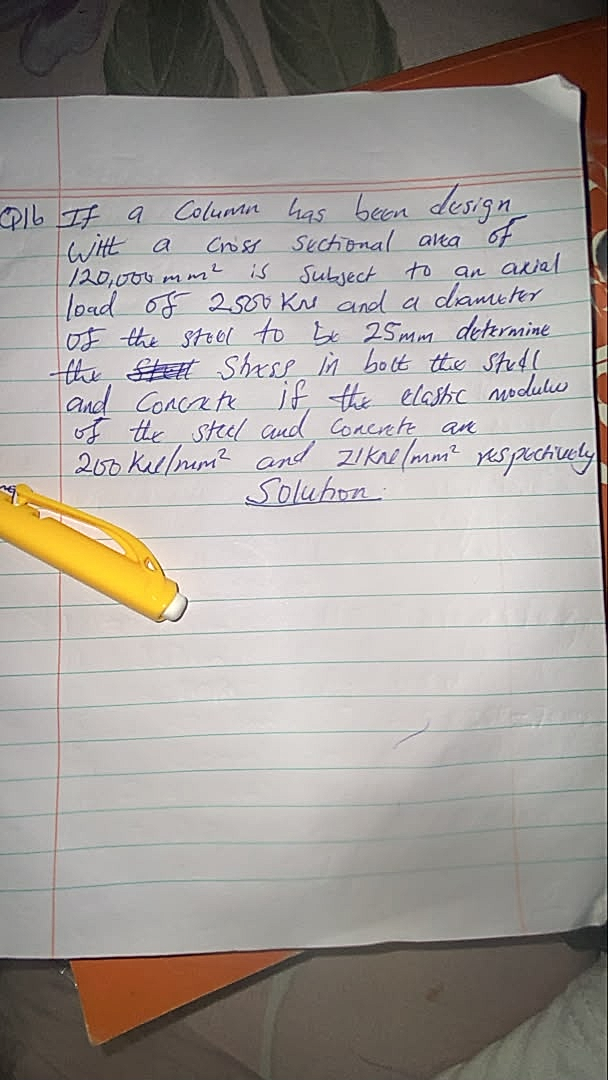 Q1b If a Column has been design
with a cross sectional area of
120,000mm² is subject to an axial
load of 2500KN and a diameter
of the steel to be 25mm determine
the Stress in both the steel
and Concrete if the elastic modulus
of the steel and concrete are
200KN/mm² and 21KN/mm² respectively
Solution.